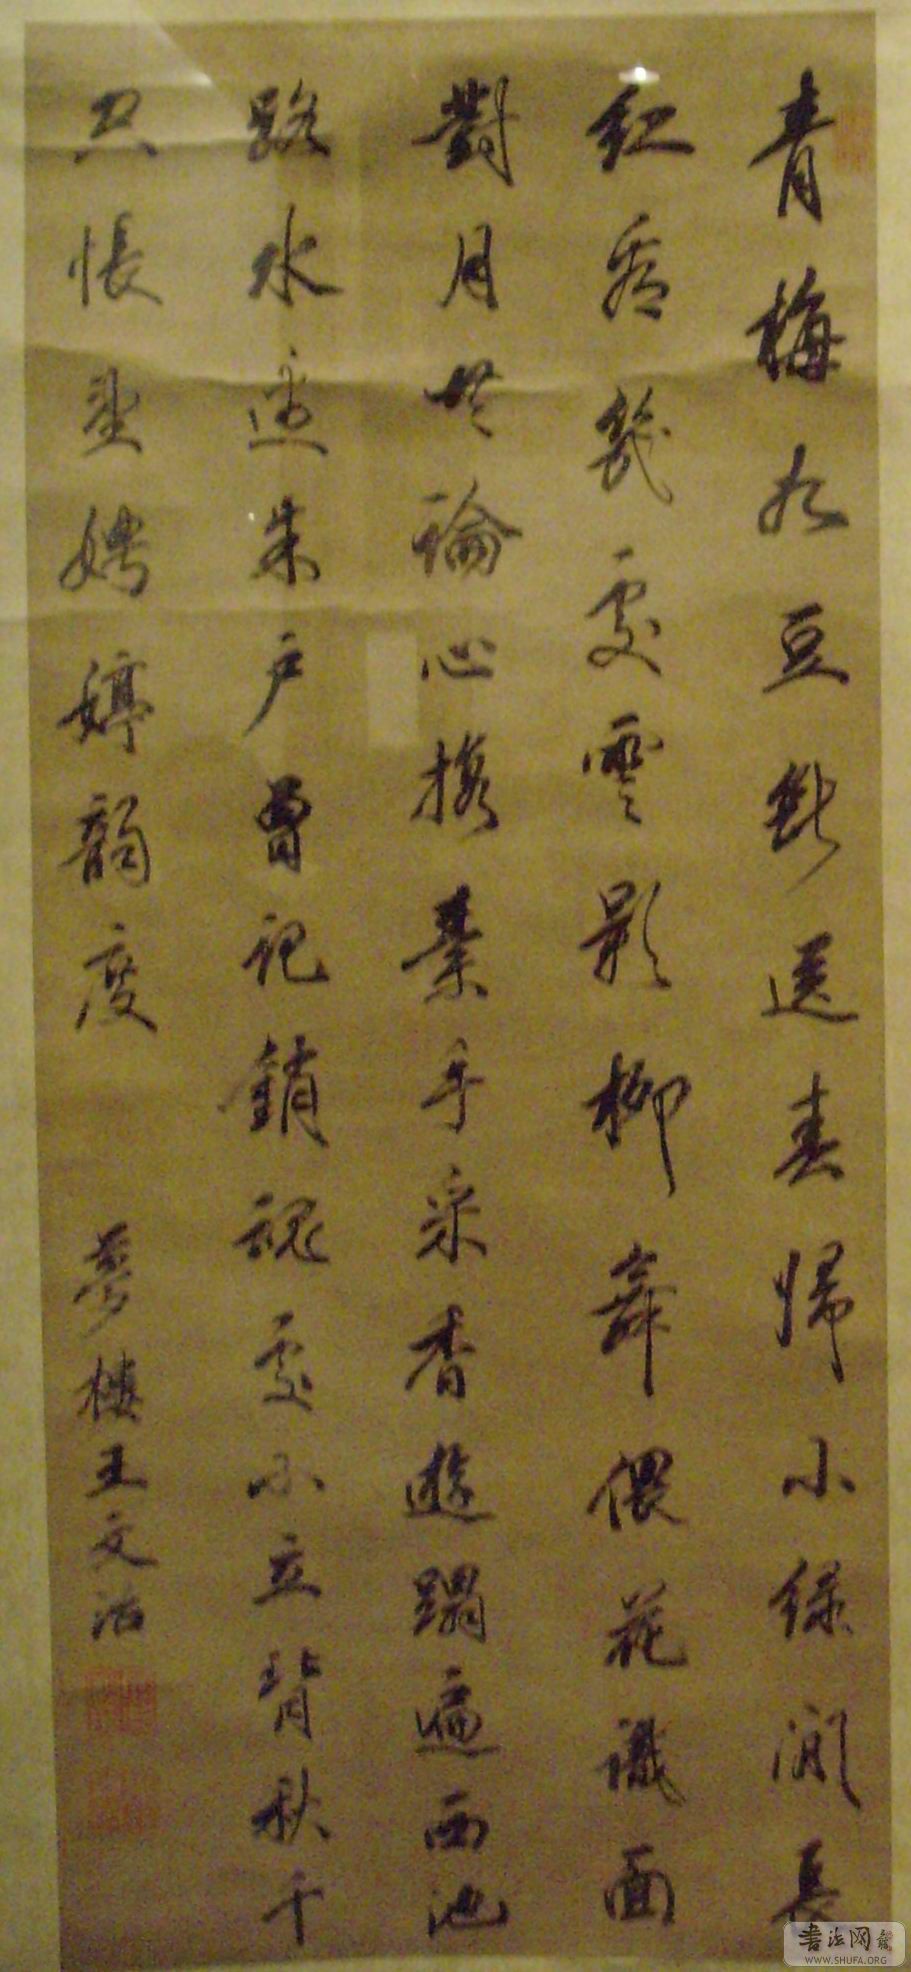 青梅如豆斷送春歸小綠間長
紅看幾處雲影柳舞偎花識面
對月共論心攜素手采香遊蹋遍西池
路水邊朱戶曾記銷魂處小立背秋千
只悵望娉婷韻度 夢樓王文治
書法网
WWW.SHUFA.ORG